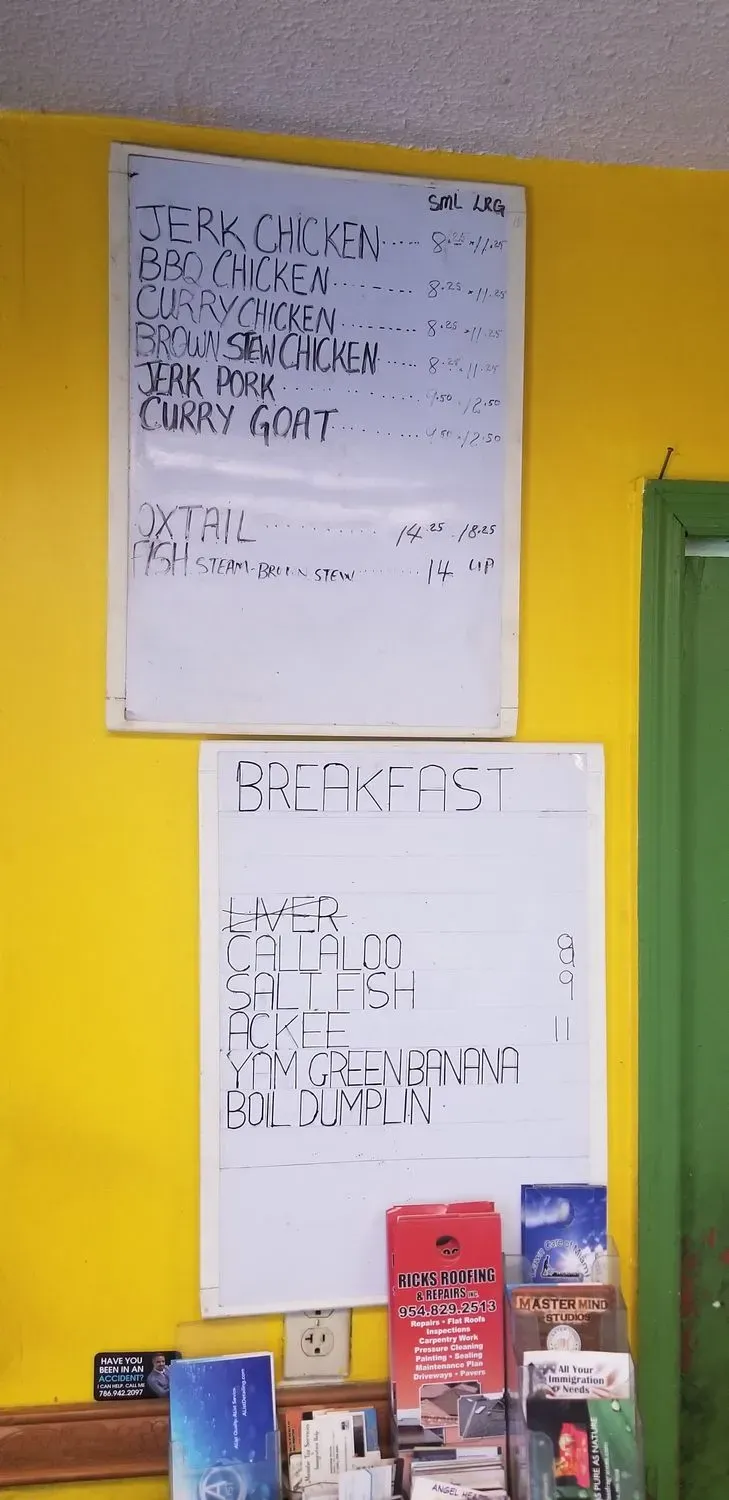 SML LRG
JERK CHICKEN ..... 8.25 11.25
BBQ CHICKEN ........ 8.25 11.25
CURRY CHICKEN ........ 8.25 11.25
BROWN STEW CHICKEN ..... 8.25 11.25
JERK PORK ............ 9.50 12.50
CURRY GOAT ........ 9.50 12.50
OXTAIL ............ 14.25 18.25
FISH STEAM-BROWN STEW ........ 14 UP
BREAKFAST
LIVER
CALLALOO 8
SALT FISH 9
ACKEE 11
YAM GREEN BANANA
BOIL DUMPLIN
RICKS ROOFING
& REPAIRS INC.
954.829.2513
Repairs • Flat Roofs
Inspections
Carpentry Work
Pressure Cleaning
Painting • Sealing
Maintenance Plan
Driveways • Pavers
MASTER MIND
STUDIOS
All Your
Immigration
Needs
PURE AS NATURE
HAVE YOU
BEEN IN AN
ACCIDENT?
I CAN HELP. CALL ME
786.942.2097